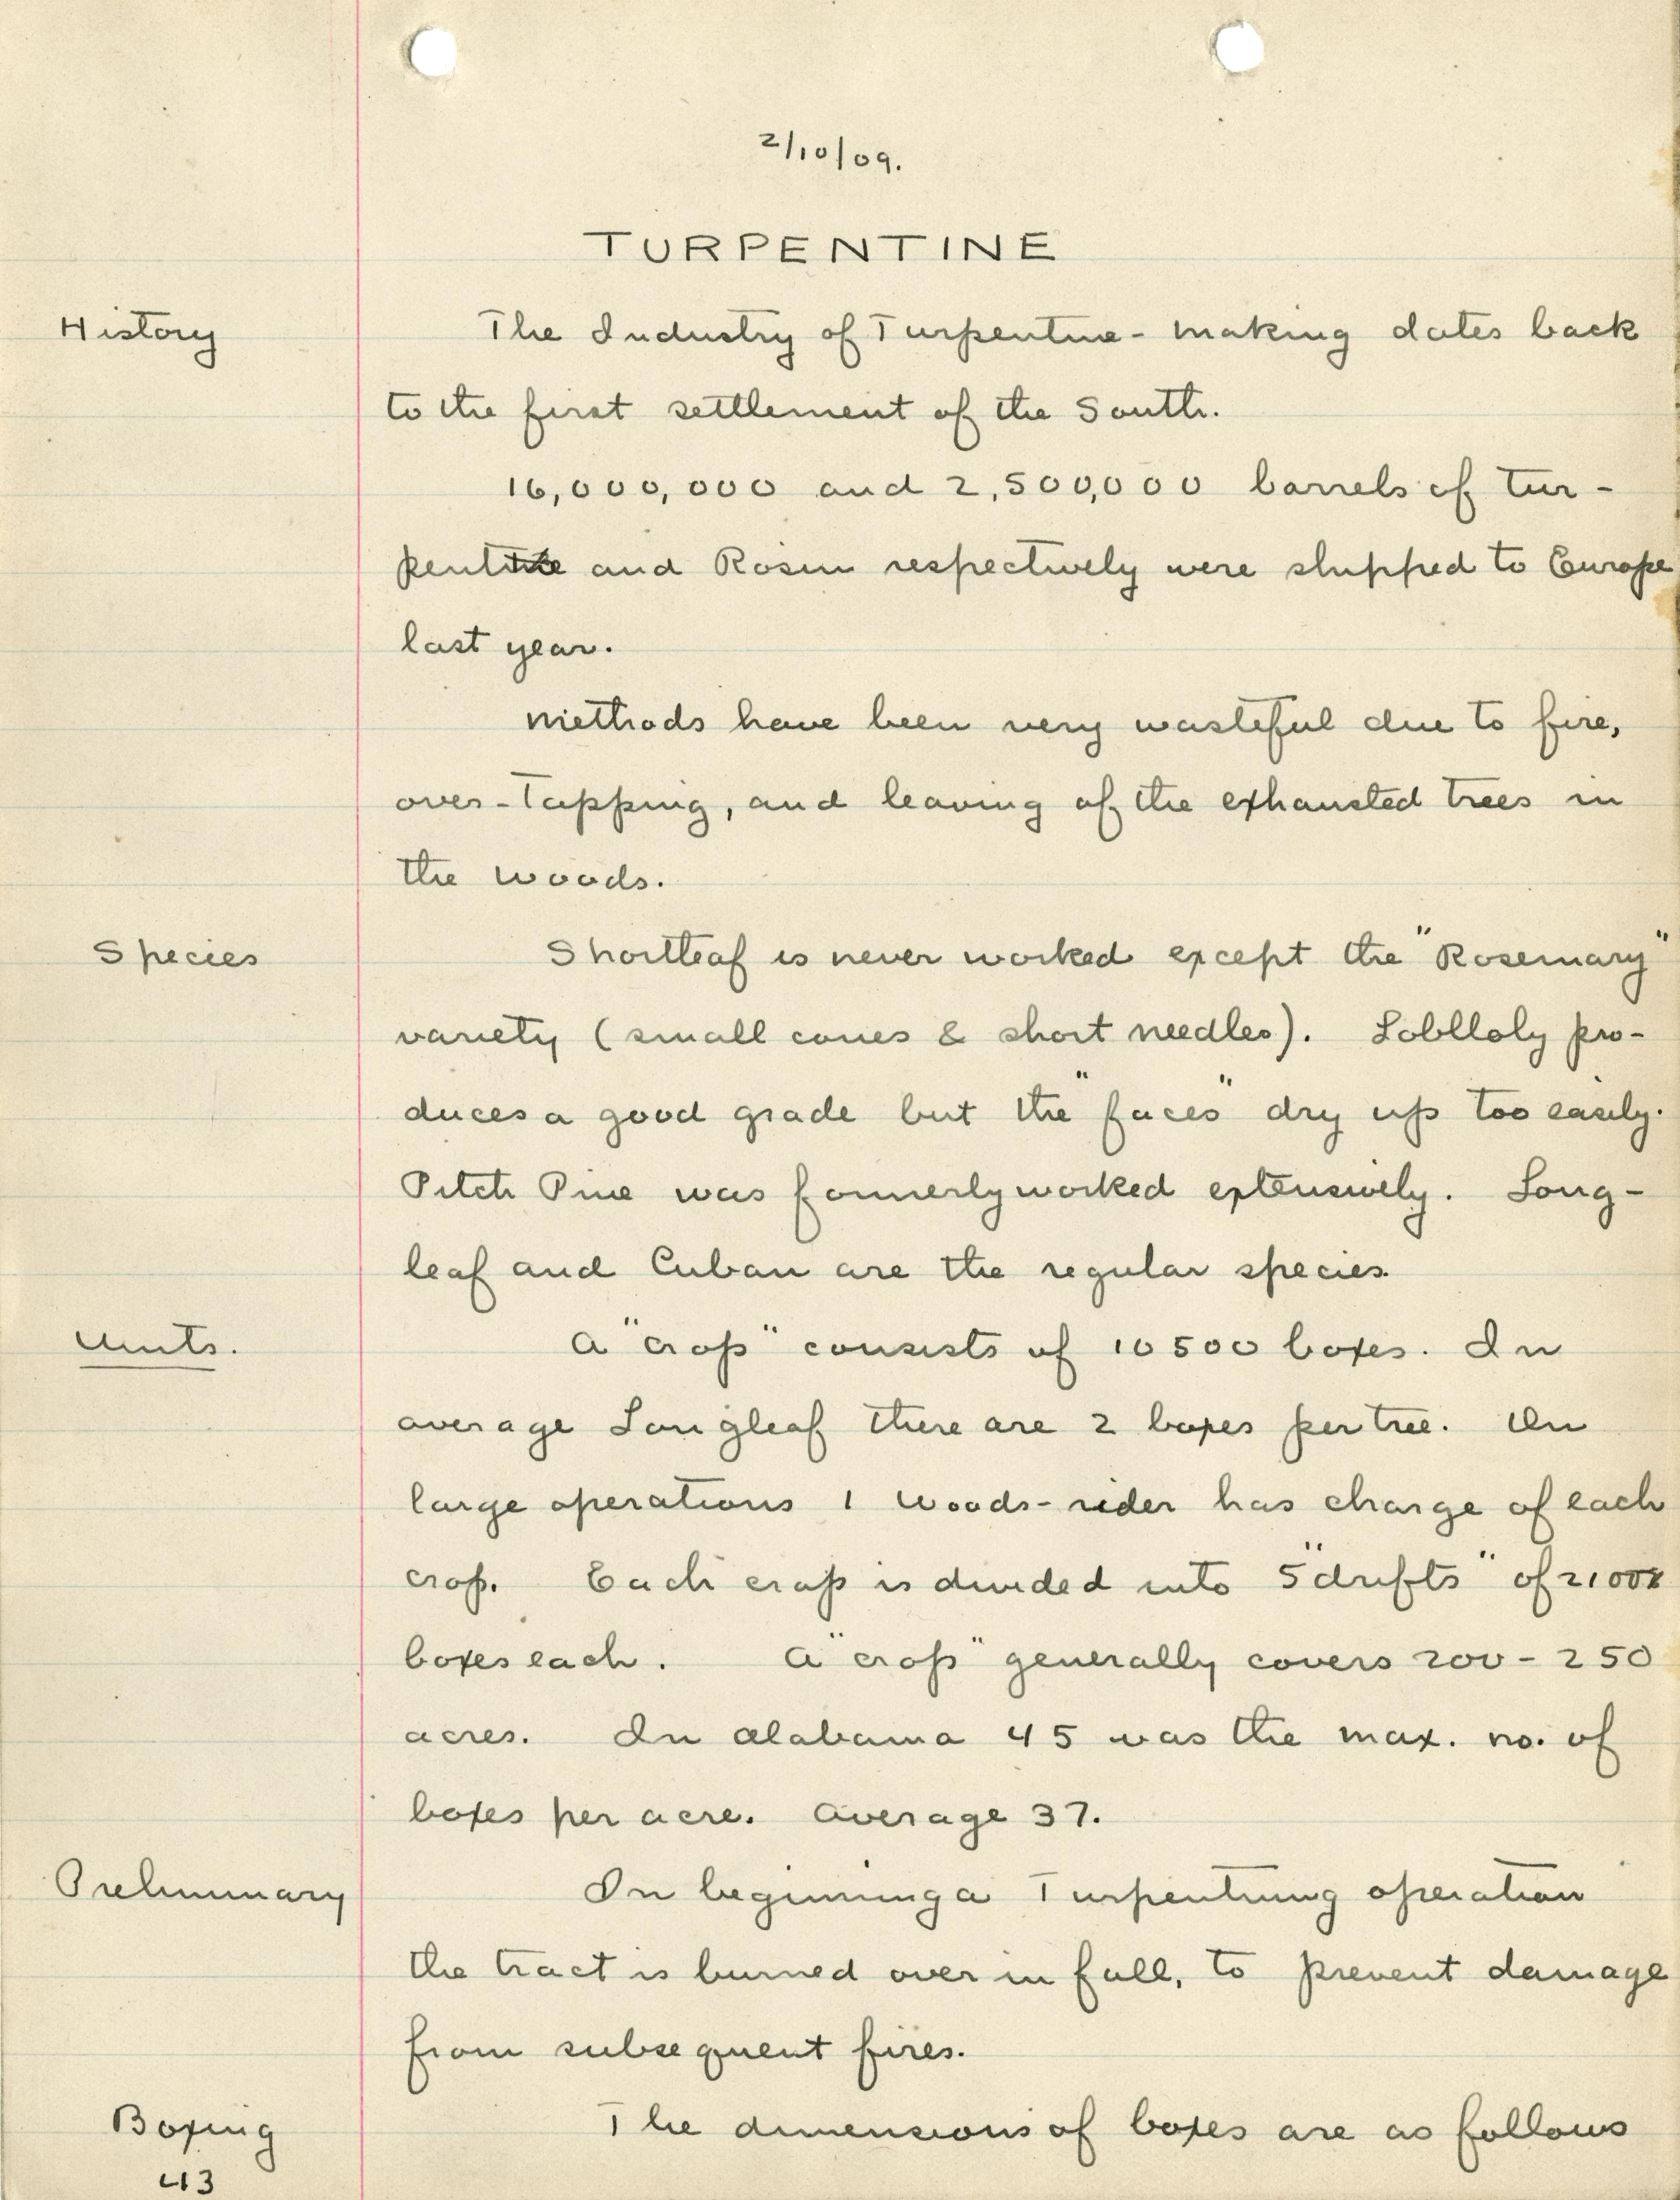 2/10/09.
TURPENTINE
History
The Industry of Turpentine-making dates back
to the first settlement of the South.
16,000,000 and 2,500,000 barrels of tur-
pentine and Rosin respectively were shipped to Europe
last year.
Methods have been very wasteful due to fire,
over-tapping, and leaving of the exhausted trees in
the woods.
Species
Shortleaf is never worked except the "Rosemary"
variety (small cones & short needles). Loblloly pro-
duces a good grade but the "faces" dry up too easily.
Pitch Pine was formerly worked extensively. Long-
leaf and Cuban are the regular species.
Units.
A "crop" consists of 10500 boxes. In
average Longleaf there are 2 boxes per tree. On
large operations 1 woods-rider has charge of each
crop. Each crop is divided into 5 "drifts" of 2100
boxes each. A "crop" generally covers 200-250
acres. In Alabama 45 was the max. no. of
boxes per acre. Average 37.
Preliminary
In beginning a Turpentining operation
the tract is burned over in fall, to prevent damage
from subsequent fires.
Boxing
The dimensions of boxes are as follows
43